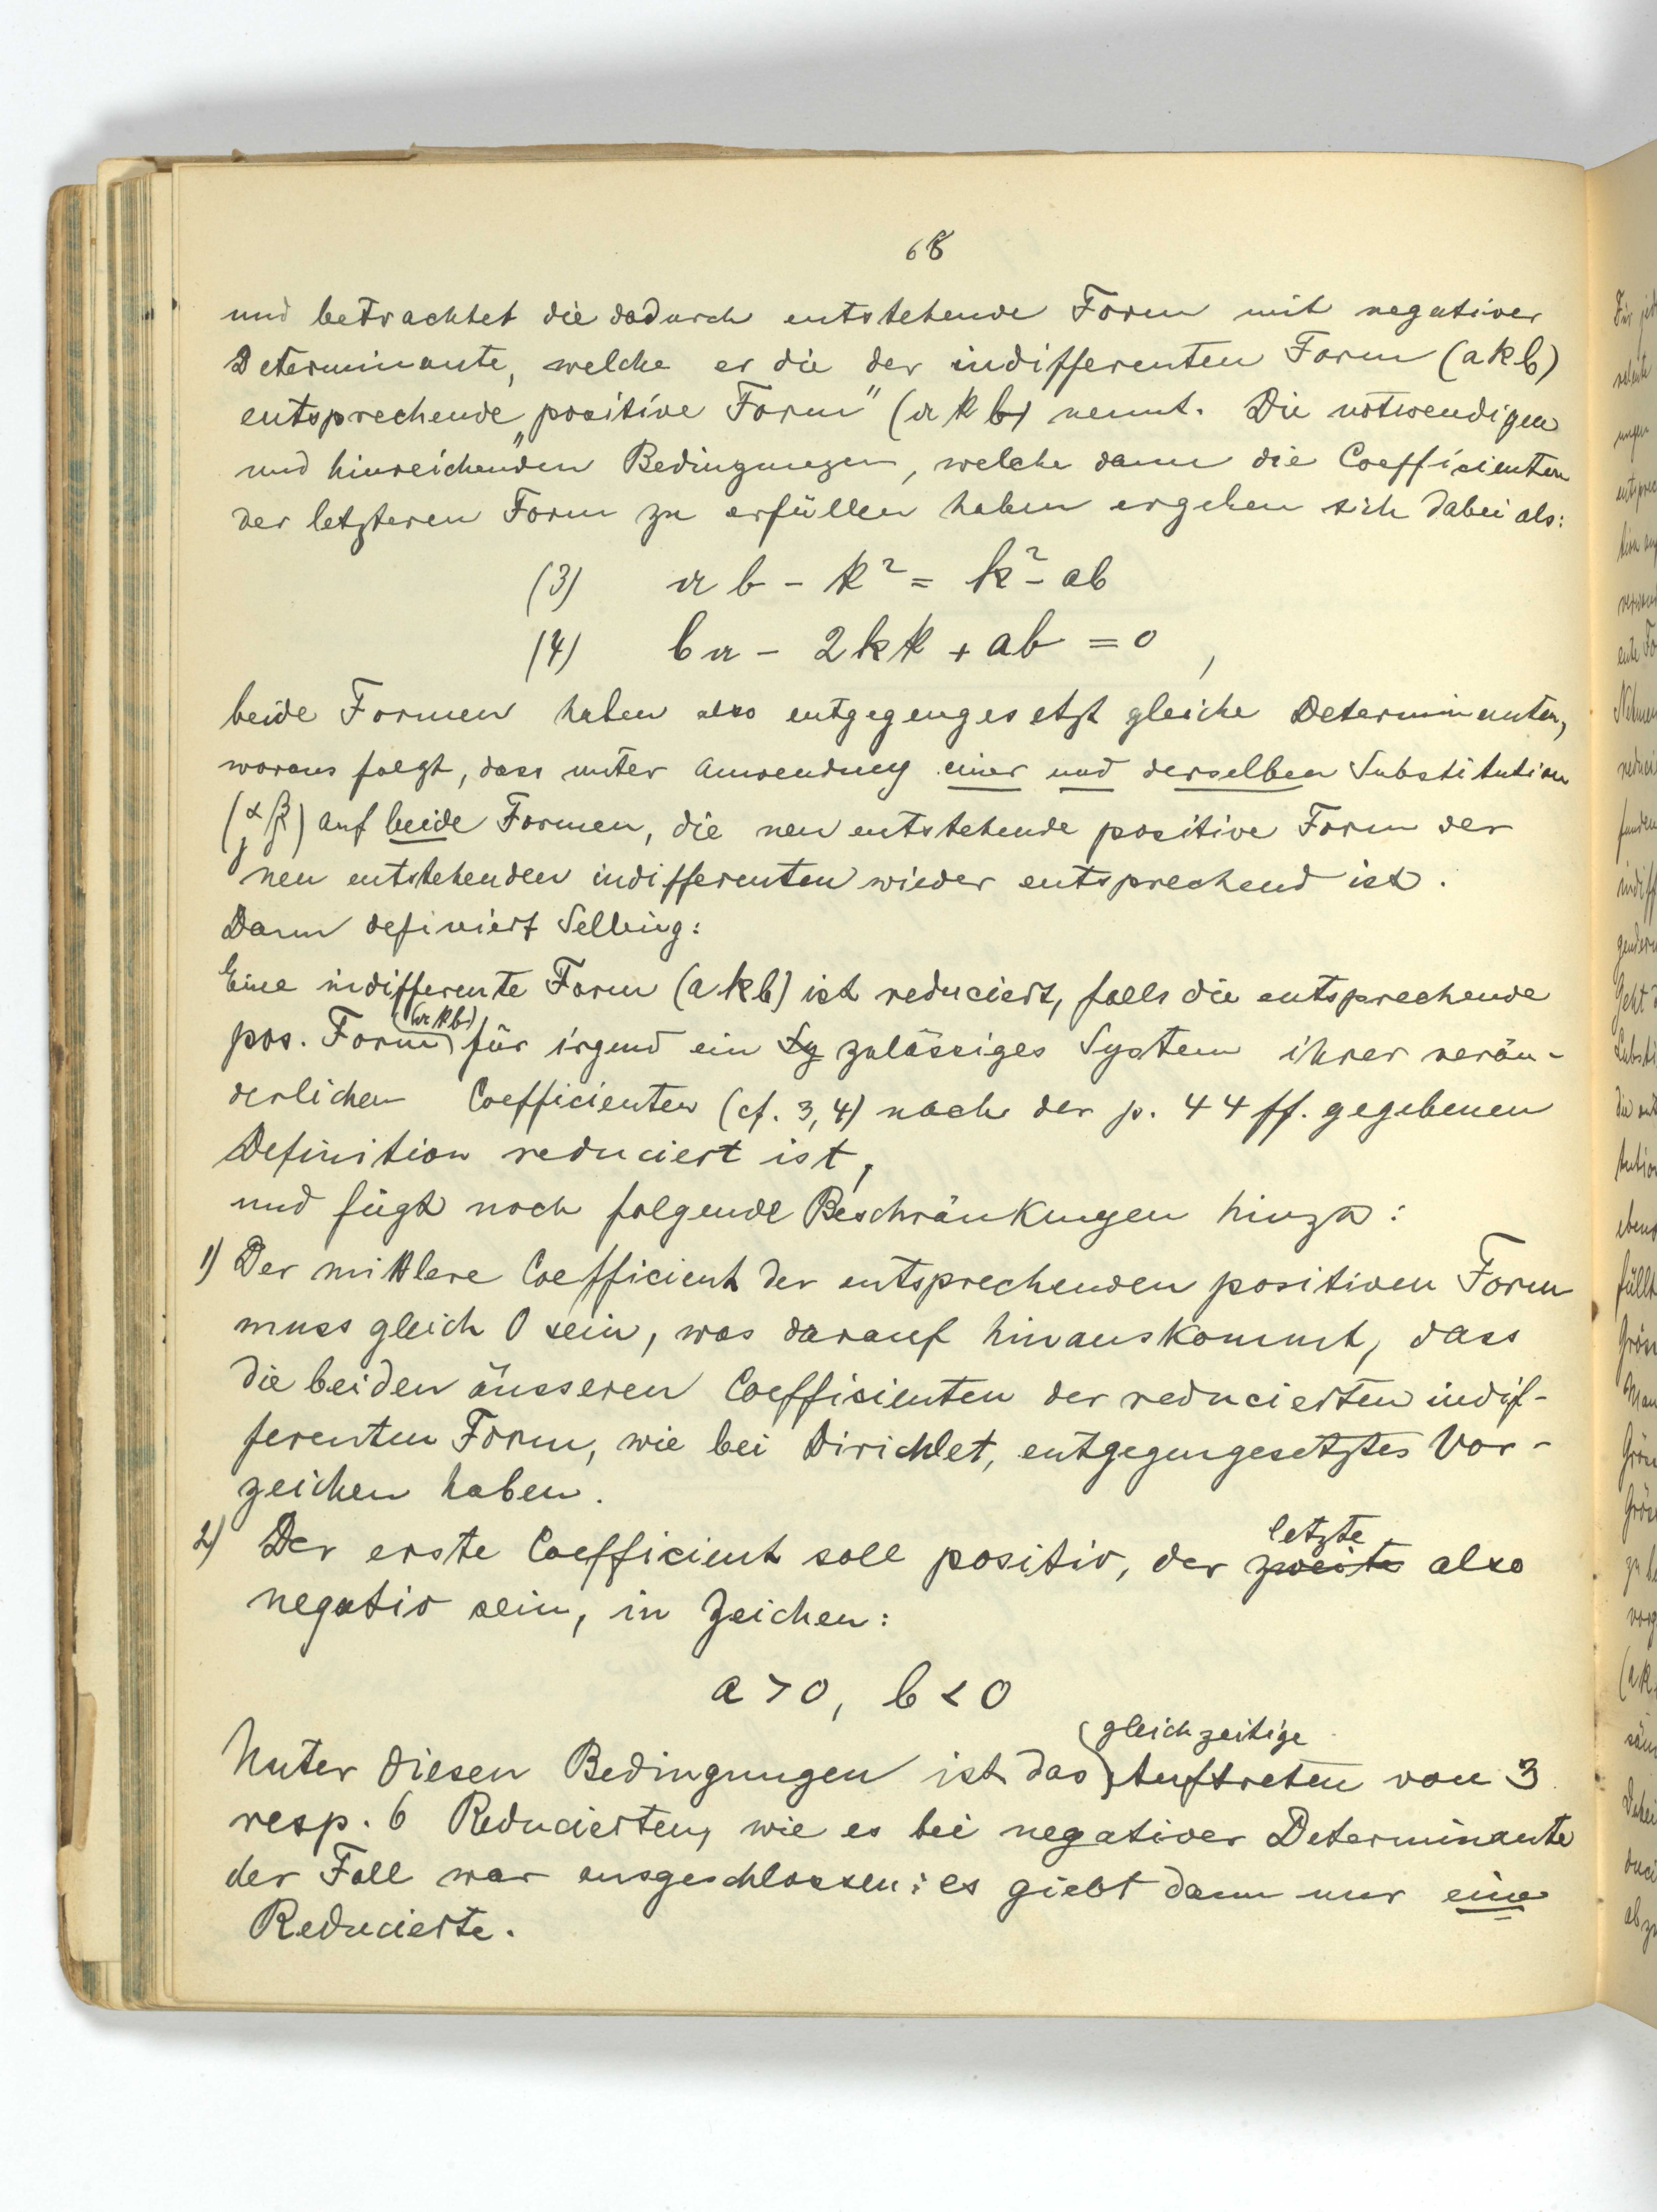 68
und betrachtet die dadurch entstehende Form mit negativer
Determinante, welche er die der indifferenten Form (a k b)
entsprechende „positive Form" (𝔞 𝔨 𝔟) nennt. Die notwendigen
und hinreichenden Bedingungen, welche dann die Coefficienten
der letzteren Form zu erfüllen haben ergeben sich dabei als:
(3) 𝔞 𝔟 - 𝔨² = k² - ab
(4) b𝔞 - 2k𝔨 + a𝔟 = 0,
beide Formen haben also entgegengesetzt gleiche Determinanten,
woraus folgt, dass unter Anwendung einer und derselben Substitution
(α β γ δ) auf beide Formen, die neu entstehende positive Form der
neu entstehenden indifferenten wieder entsprechend ist.
Dann definiert Selling:
Eine indifferente Form (a k b) ist reduciert, falls die entsprechende
pos. Form (𝔞 𝔨 𝔟) für irgend ein Sy zulässiges System ihrer verän-
derlichen Coefficienten (cf. 3, 4) nach der p. 44 ff. gegebenen
Definition reduciert ist,
und fügt noch folgende Beschränkungen hinzu:
1) Der mittlere Coefficient der entsprechenden positiven Form
muss gleich 0 sein, was darauf hinauskommt, dass
die beiden äusseren Coefficienten der reducierten indif-
ferenten Form, wie bei Dirichlet, entgegengesetztes Vor-
zeichen haben.
2) Der erste Coefficient soll positiv, der zweite letzte also
negativ sein, in Zeichen:
a > 0, b < 0
Unter diesen Bedingungen ist das gleichzeitige Auftreten von 3
resp. 6 Reducierten, wie es bei negativer Determinante
der Fall war ausgeschlossen: es giebt dann nur eine
Reducierte.